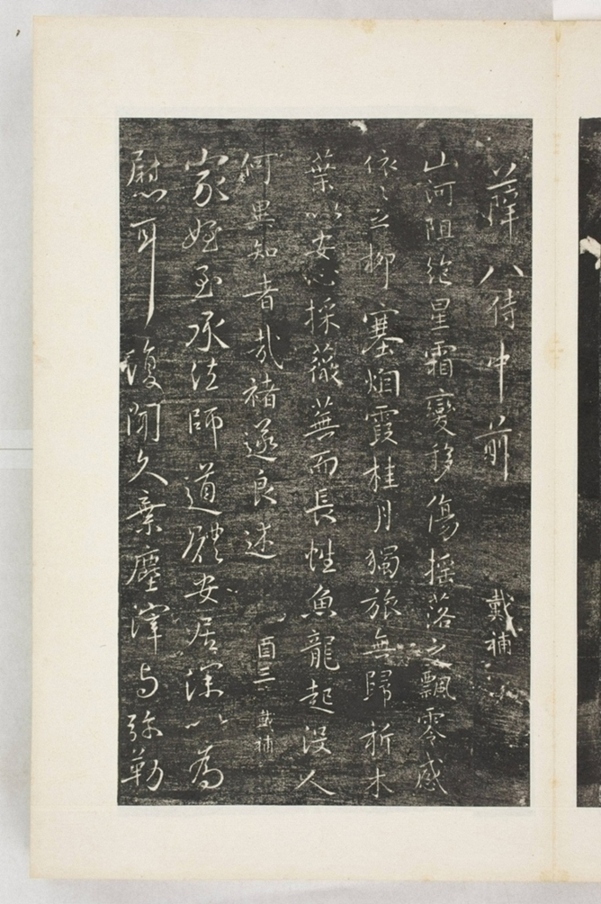 薛八侍中前 戴補
山河阻絶星霜變移傷搖落之飄零感
依〻之柳塞烟霞桂月獨旅無歸折木
葉以安心採薇蕪而長性魚龍起沒人
何異知者哉褚遂良述 百三 戴補
家姪至承法師道體安居深以為
慰耳復聞久棄塵滓与弥勒